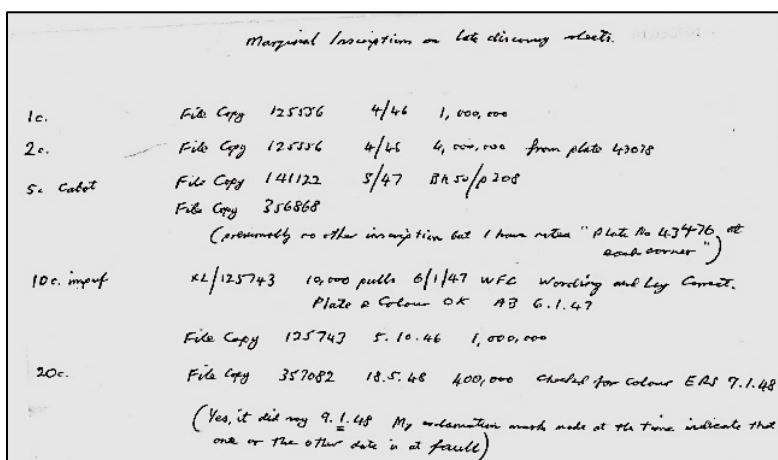 Marginal Inscriptions on late discovery sheets.
1c. File Copy 125556 4/46 1,000,000
2c. File Copy 125556 4/46 4,000,000 from plate 43038
5c Cabot File Copy 141122 5/47 BK 50/p 208
File Copy 356868
(presumably no other inscription but I have noted "Plate No 43476 at
each corner")
10c. imperf XL/125743 10,000 pulls 6/1/47 WFC Wording and Lay Correct.
Plate & Colour OK AB 6.1.47
File Copy 125743 5.10.46 1,000,000
20c. File Copy 357082 18.5.48 400,000 Checked for Colour ERS 7.1.48
(Yes, it did say 9.1.48 My exclamation mark made at the time indicate that
one or the other date is at fault)